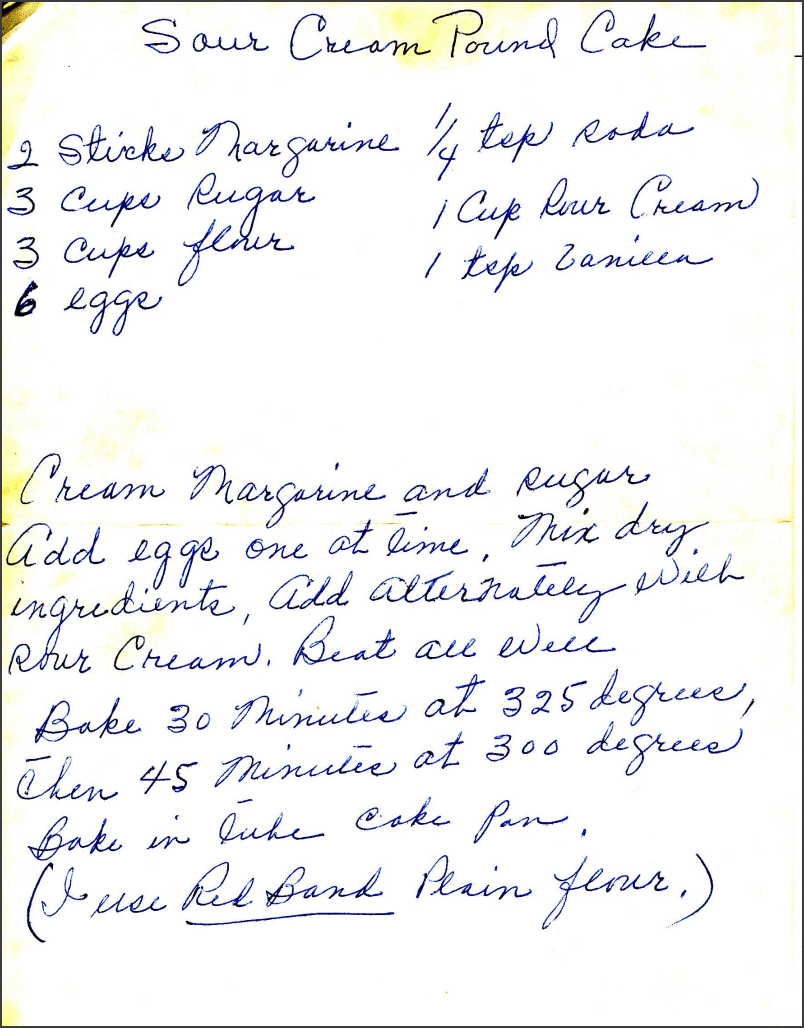 Sour Cream Pound Cake
2 Sticks Margarine
3 Cups Sugar
3 Cups flour
6 eggs
1/4 tsp soda
1 Cup Sour Cream
1 tsp Vanilla
Cream Margarine and sugar
Add eggs one at time. Mix dry
ingredients, Add alternately with
sour Cream. Beat all well
Bake 30 Minutes at 325 degrees,
then 45 Minutes at 300 degrees
Bake in tube cake pan.
(I use Red Band Plain flour.)